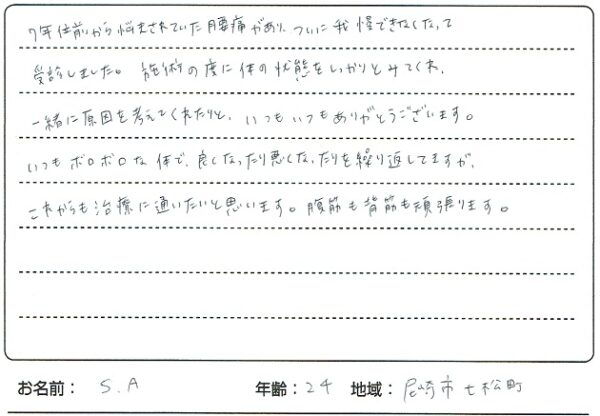 7年位前から悩まされていた腰痛があり、ついに我慢できなくなって
受診しました。施術の度に体の状態をしっかりとみてくれ、
一緒に原因を考えてくれたりと、いつもいつもありがとうございます。
いつもボロボロな体で、良くなったり悪くなったりを繰り返してますが、
これからも治療に通いたいと思います。腹筋も背筋も頑張ります。
お名前： S.A 年齢：24 地域：尼崎市七松町